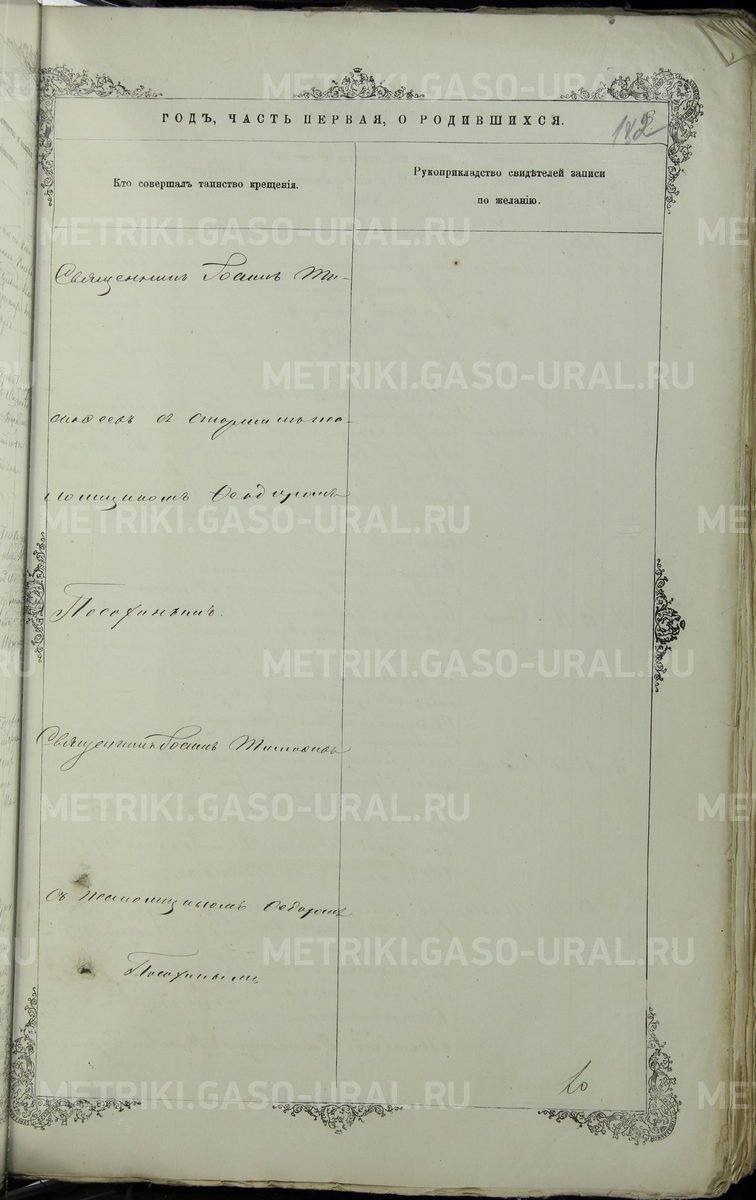 ГОДЪ, ЧАСТЬ ПЕРВАЯ, О РОДИВШИХСЯ.
182
Кто совершалъ таинство крещенія.
Рукоприкладство свидѣтелей записи
по желанію.
Священникъ Іоаннъ Ти-
моѳеевъ съ
помщикомъ Ѳеодоромъ
Посохинымъ.
Священникъ Іоаннъ Тимоѳеевъ
съ Ѳеодоромъ
Посохинымъ
METRIKI.GASO-URAL.RU